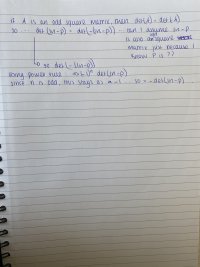 if A is an odd square matrix then det(A) = det(-A)
so ... det(In-P) = det(-(In-P)) ... can I assume In-P
is an odd square
matrix just because I
know P is ??
so det(-1(In-P))
Using power rule (-1)^n det(In-P)
since n is odd, this stays as a -1 so = -det(In-P)